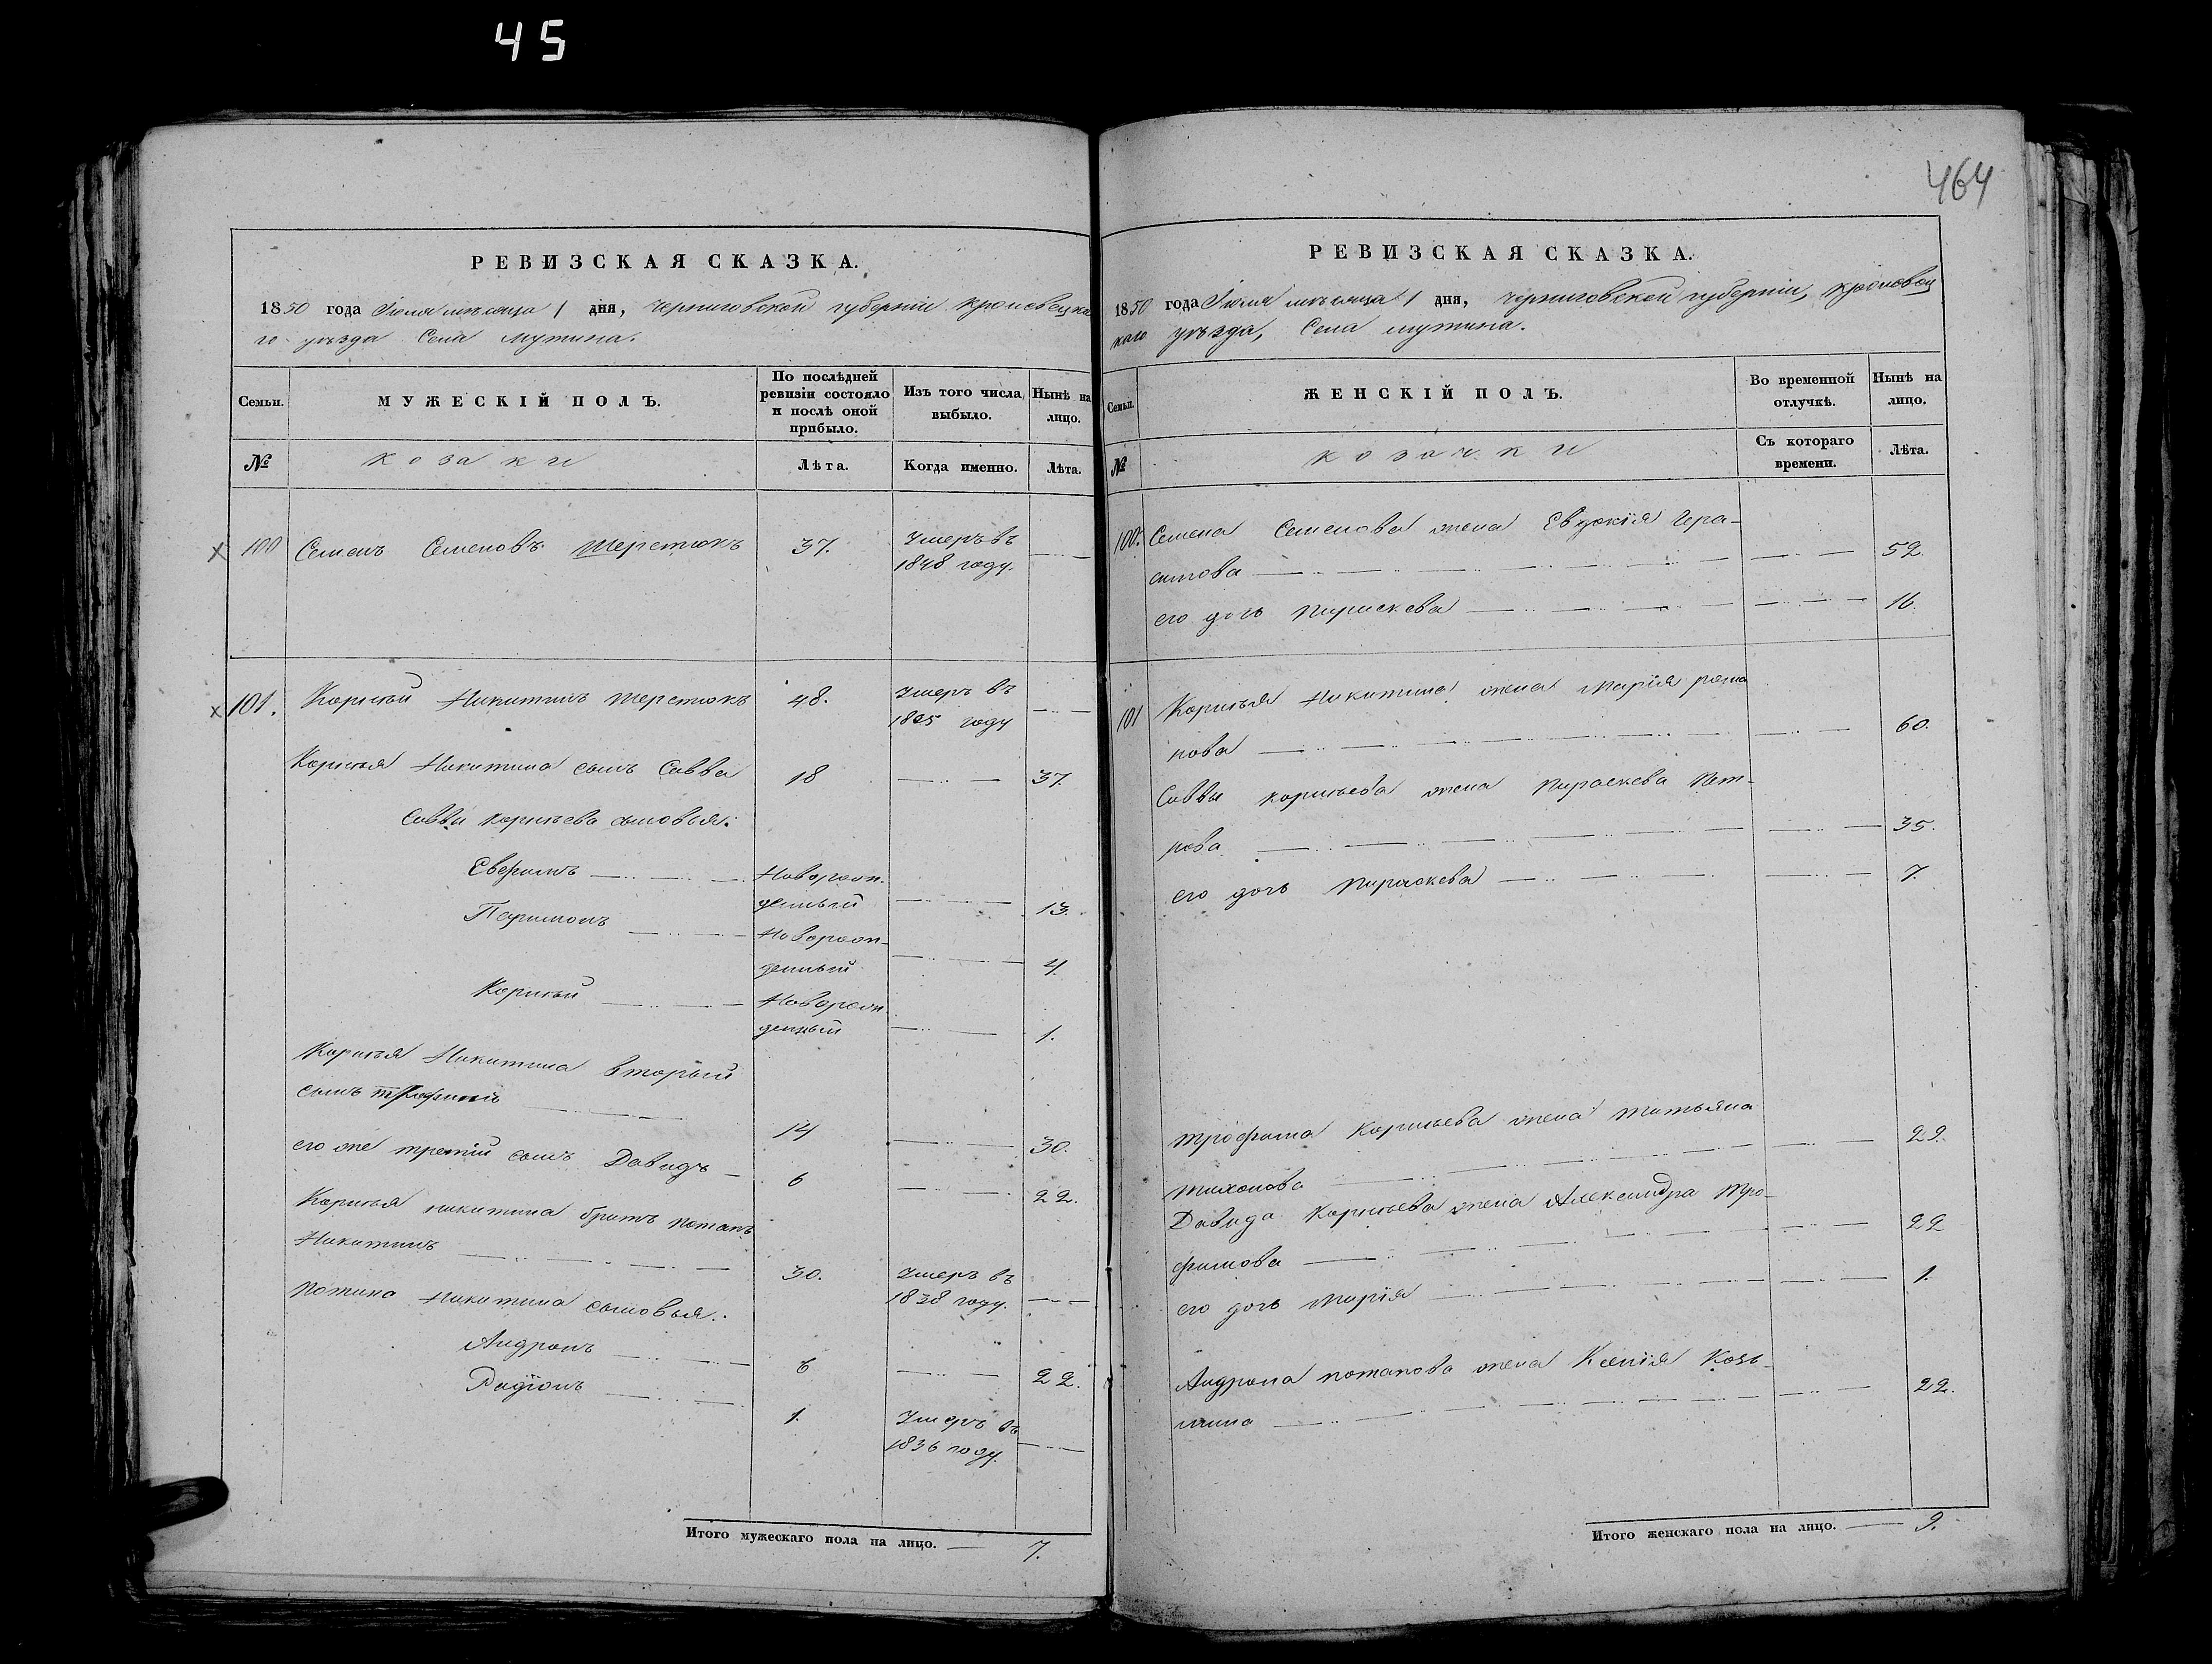 45
464
РЕВИЗСКАЯ СКАЗКА.
1850 года Іюля мѣсяца 1 дня, Черниговской губерніи Кролевецка
го уѣзда Села Мутина.
Семьи.
МУЖЕСКІЙ ПОЛЪ.
По послѣдней
ревизіи состояло
и послѣ оной
прибыло.
Изъ того числа
выбыло.
Нынѣ на
лицо.
№
козаки
Лѣта.
Когда именно.
Лѣта.
100 Семенъ Семеновъ Шерстюкъ 37. Умеръ въ
1848 году.
101. Корнѣй Никитинъ Шерстюкъ 48. Умеръ въ
году
Корнѣя Никитина сынъ Савва 18 37.
Саввы Корнѣева сыновья:
Новорож-
денный 13.
Новорож-
денный 4.
Корнѣй Новорож-
денный 1.
Корнѣя Никитина вторый
сынъ 14 30.
его же третій сынъ Давидъ 6 22.
Корнѣя Никитина братъ Потапъ
Никитинъ 30. Умеръ въ
1838 году.
Потапа Никитина сыновья:
Андронъ 6 22.
Радіонъ 1. Умеръ въ
1836 году.
Итого мужескаго пола на лицо. 7.
РЕВИЗСКАЯ СКАЗКА.
1850 года Іюля мѣсяца 1 дня, Черниговской губерніи, Кролевец
каго уѣзда, Села Мутина.
Семьи.
ЖЕНСКІЙ ПОЛЪ.
Во временной
отлучкѣ.
Нынѣ на
лицо.
№
козачки
Съ котораго
времени.
Лѣта.
100. Семена Семенова жена Евдокія Гера-
симова 52.
его дочь Параскева 16.
101 Корнѣя Никитина жена Марія Рома
нова 60.
Саввы Корнѣева жена Параскева Пет-
рова 35.
его дочь Параскева 7.
Трофима Корнѣева жена Татьяна
Тихонова 29.
Давида Корнѣева жена Александра Тро-
фимова 22
его дочь Марія 1.
Андрона Потапова жена Ксенія Козь-
мина 22.
Итого женскаго пола на лицо. 9.